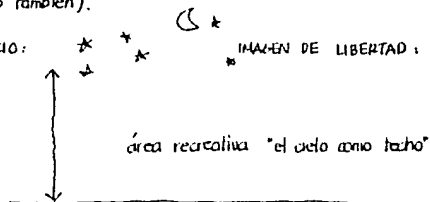 también).
IO:
IMAGEN DE LIBERTAD:
área recreativa "el cielo como techo"